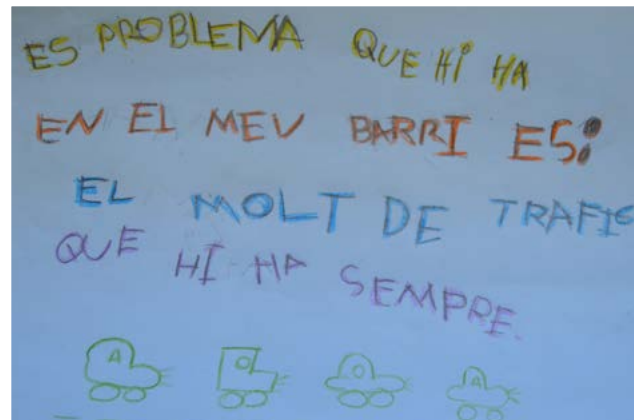 ES PROBLEMA QUE HI HA
EN EL MEU BARRI ES:
EL MOLT DE TRAFIC
QUE HI HA SEMPRE.
A O O A